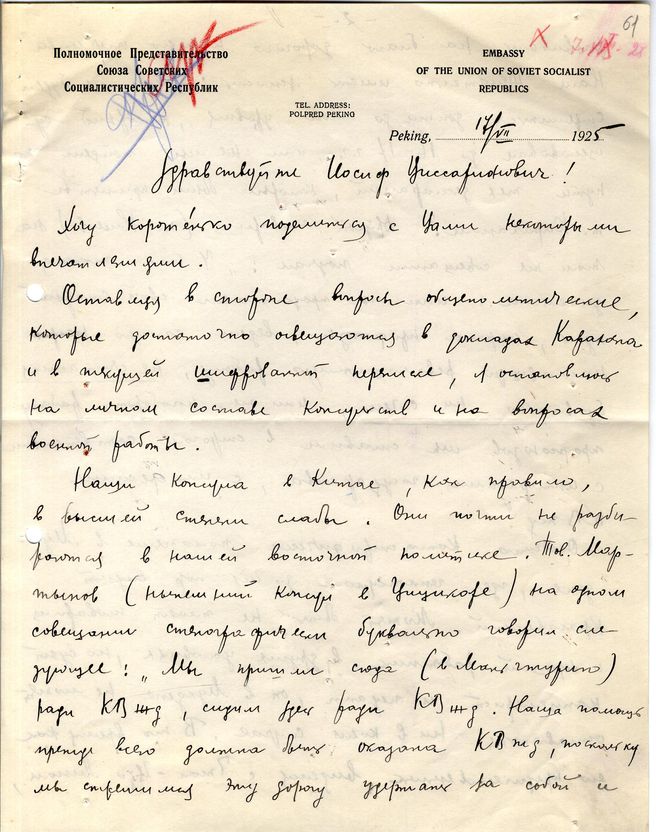 61
Полномочное Представительство
Союза Советских
Социалистических Республик
EMBASSY
OF THE UNION OF SOVIET SOCIALIST
REPUBLICS
TEL. ADDRESS:
POLPRED PEKING
Peking, 17/VII 1925
Здравствуйте Иосиф Виссарионович!
Хочу коротенько поделиться с Вами некоторыми
впечатлениями.
Оставляя в стороне вопросы общеполитические,
которые достаточно освещаются в докладах Карахана
и в текущей шифрованной переписке, я остановлюсь
на личном составе консульств и на вопросах
военной работы.
Наши консула в Китае, как правило,
в высшей степени слабы. Они почти не разби-
раются в нашей восточной политике. Тов. Мар-
тынов (нынешний консул в Цицикаре) на одном
совещании стенографически буквально говорил сле-
дующее: "Мы пришли сюда (в Манчжурию)
ради КВжд, сидим здесь ради КВжд. Наша помощь
прежде всего должна быть оказана КВжд, поскольку
мы стремимся эту дорогу удержать за собой и